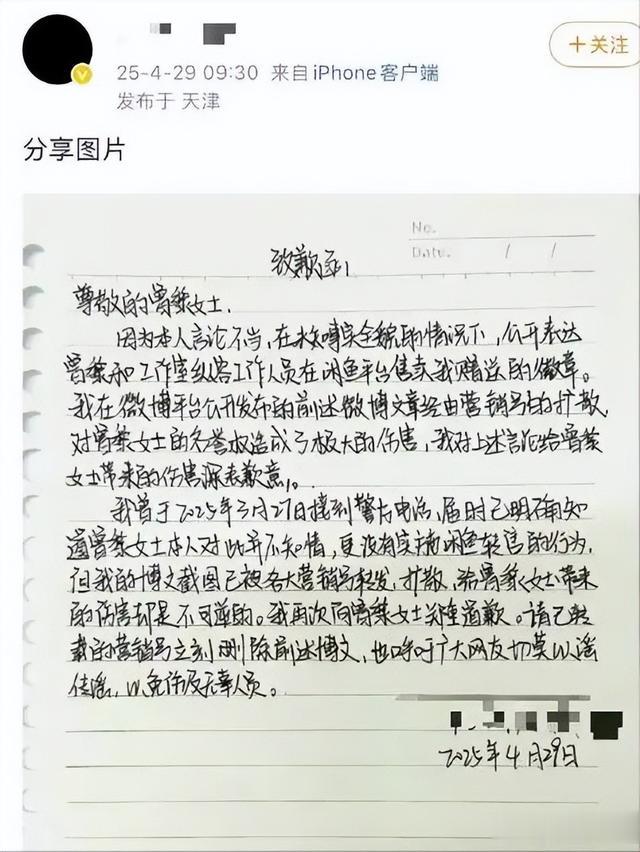 +关注
25-4-29 09:30 来自 iPhone客户端
发布于 天津
分享图片
No.
Date. / /
致歉函
尊敬的曾黎女士.
因为本人言论不当,在未知全貌的情况下,公开表达
曾黎和工作室纵容工作人员在闲鱼平台售卖我赠送的徽章。
我在微博平台公开发布的前述微博文章经由营销号的扩散,
对曾黎女士的名誉权造成了极大的伤害,我对上述言论给曾黎
女士带来的伤害深表歉意。
我曾于2025年3月27日接到警方电话,届时已明确知
道曾黎女士本人对此并不知情,更没有实施闲鱼转售的行为,
但我的博文截图已被各大营销号转发,扩散,给曾黎女士带来
的伤害却是不可逆的。我再次向曾黎女士郑重道歉。请已转
载的营销号立刻删除前述博文,也呼吁广大网友切莫以谣
传谣,以免伤及无辜人员。
2025年4月29日